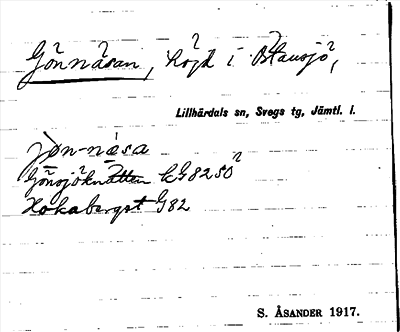 Gönnäsan, höjd i Blåusjö,
Lillhärdals sn, Svegs tg, Jämtl. l.
jøn-næsa
Gönsjöknätten kG8250
Hokaberget G82
S. ÅSANDER 1917.